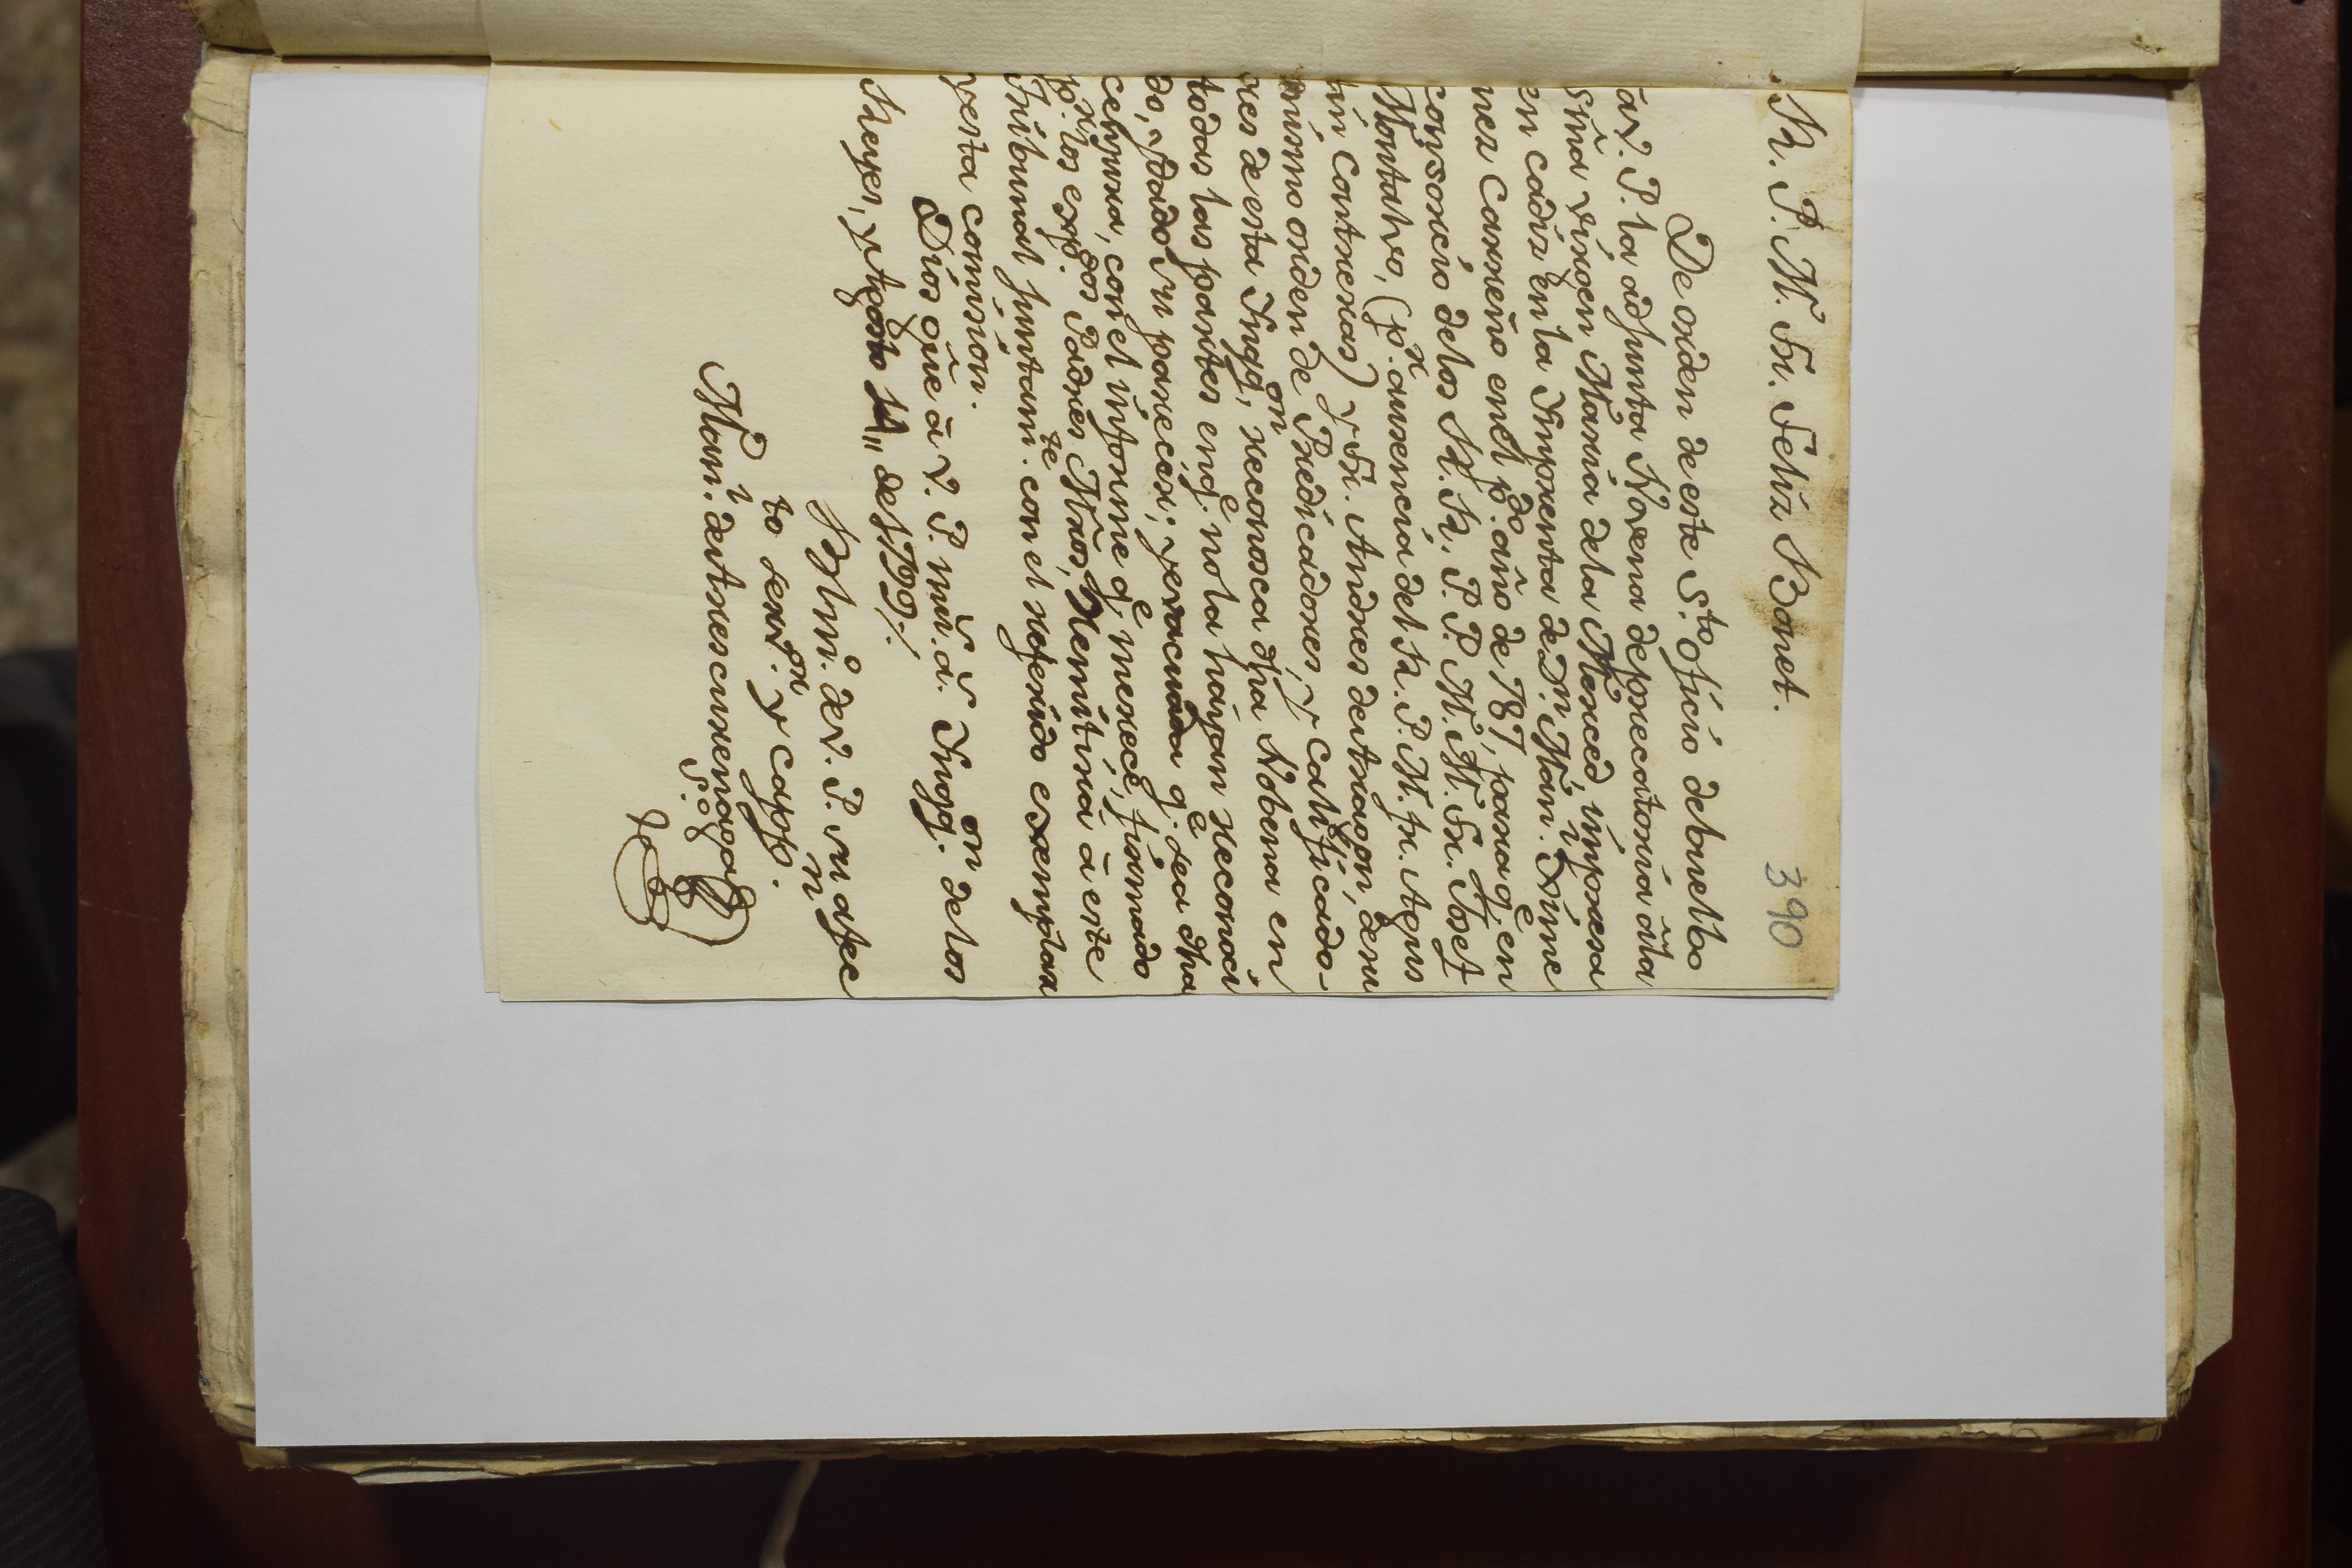 390
R. P. M. Fr. Feliz Bonet.
De orden de este S.to Oficio debuelbo
â V. P. la adjunta Novena deprecatoria âla
SSma virgen Maria dela Merced, impresa
en cadiz en la Imprenta de D.n Man.l Xime
nez Carreño en el p.do año de 787, para q.e en
consorcio delos R. R. P. P. M. M. Fr. Josef
Montalvo, (p.r ausencia del R. P. M. fr. Agus
tin Contreras) y Fr. Andres de Aragon, de su
mismo orden de Predicadores, y Calificado-
res de esta Inqq.on, reconosca dha Nobena en
todas las partes en q.e no la hayan reconoci
do, y dado su parecer; y evacuada q.e sea dha
censura, con el informe q.e merece, firmado
p.r los expg.os Padres Mros, Remitirá â este
Tribunal juntam.te con el referido exemplar
y esta comision.
Dios gue â V. P. m.s a.s Inqq.on de los
Reyes, y Agosto 14,, de 1799,,
B L m.o de V. P. su afec
to serv.or y capp.n
Man.l de Arrescurrenaga
S.o